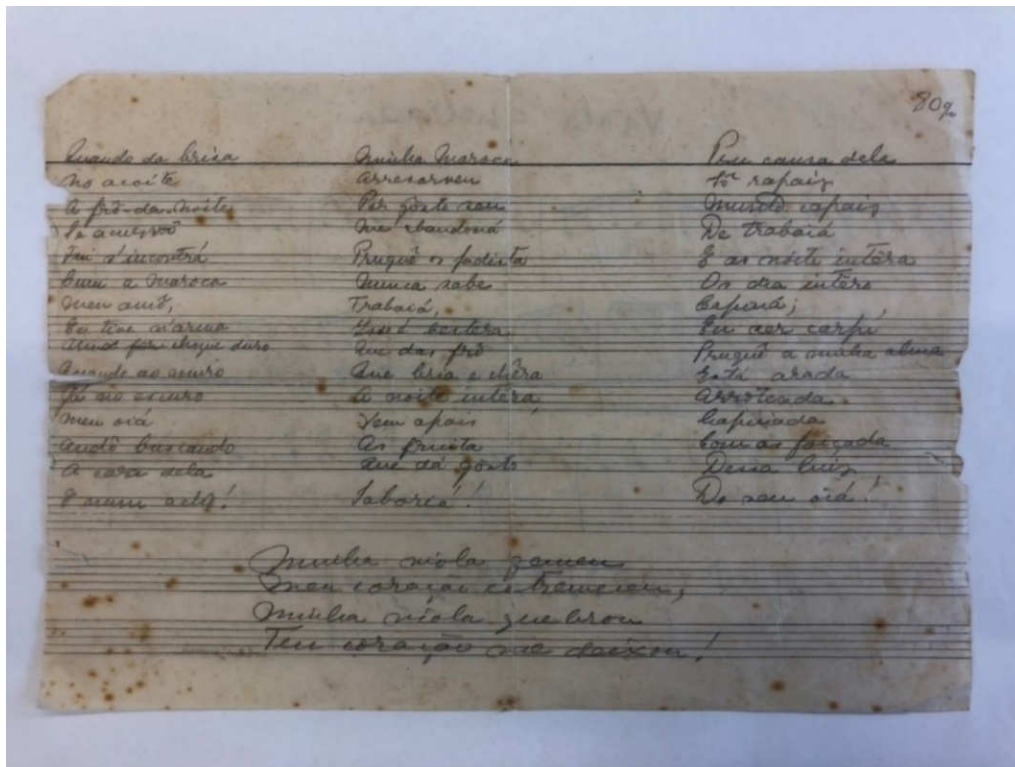 80%
Quando da brisa
No açoite
A frô-da-noite
Se acurvô
Fui s'incontrá
Cum a Maroca
Meu amô,
Eu tive n'arma
choque duro
Quando ao muro
Já no escuro
Meu oiá
Andô buscando
A cara dela
E num achô!
Minha Maroca
Arresorveu
Por gosto seu
Me abandoná
Pruquê os fadista
Nunca sabe
Trabaiá,
Isso é besteira
Que das frô
Que bria e chêra
A noite intêra
Vem apois
As fruita
Que dá gosto
Saboreá!
Pru causa dela
rapaiz
Muito capaiz
De trabaiá
E as noite intêra
Os dia intêro
Capiná;
Eu sei carpi
Pruquê a minha alma
Está arada
Arroteada
Capinada
Com as foiçada
Dessa luiz
Do seu oiá!
Minha viola gemeu
Meu coração estremeceu,
Minha viola quebrou
Teu coração me deixou!